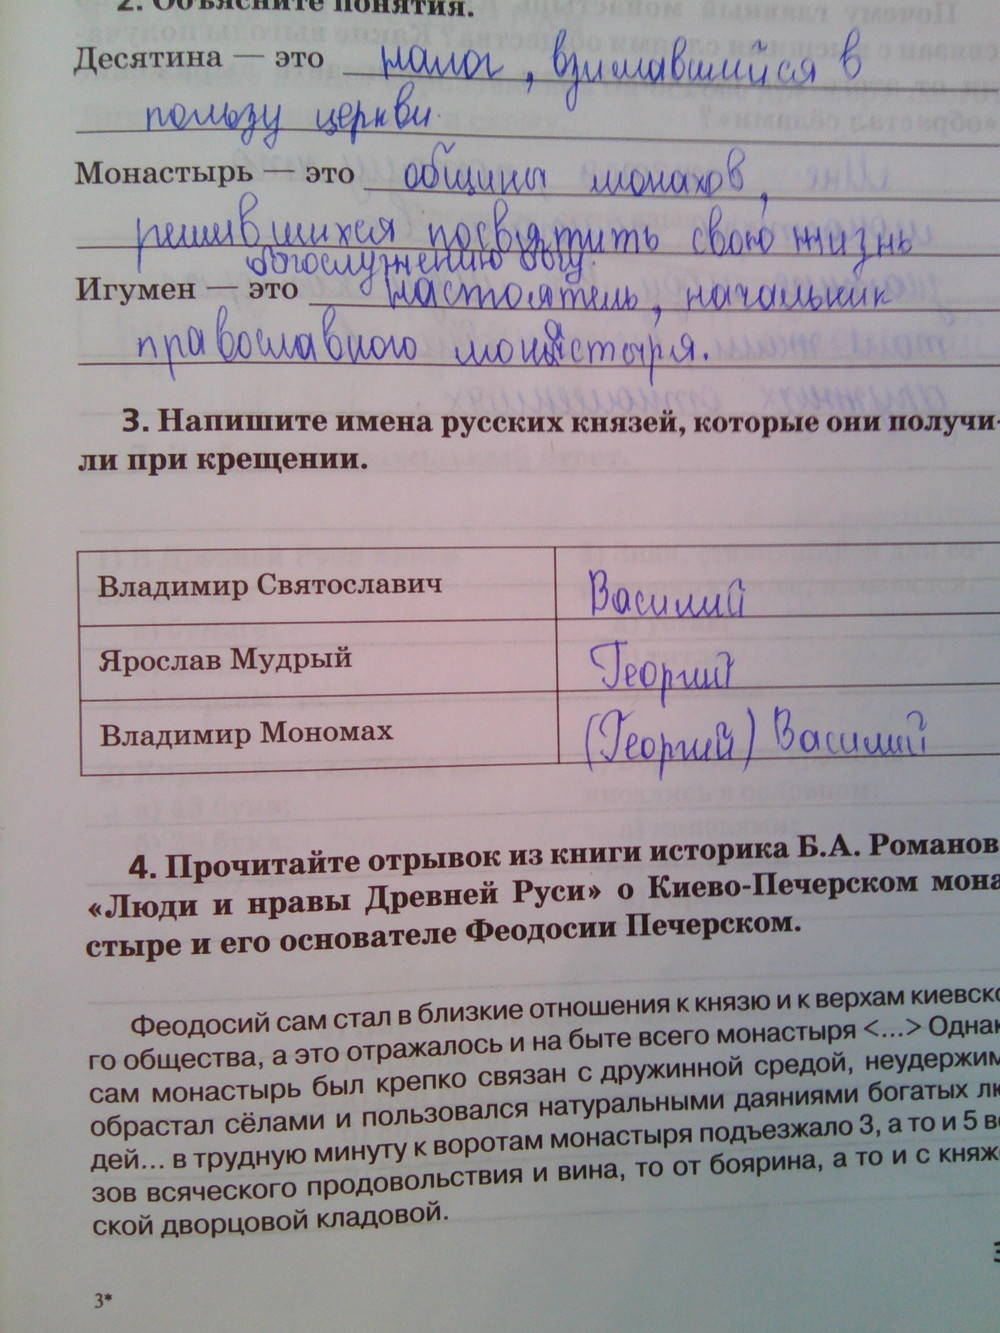 2. Объясните понятия.
Десятина — это налог, взимавшийся в
пользу церкви.
Монастырь — это общины монахов,
решившихся посвятить свою жизнь
богослужению богу.
Игумен — это настоятель, начальник
православного монастыря.
3. Напишите имена русских князей, которые они получи-
ли при крещении.
Владимир Святославич Василий
Ярослав Мудрый Георгий
Владимир Мономах (Георгий) Василий
4. Прочитайте отрывок из книги историка Б.А. Романов
«Люди и нравы Древней Руси» о Киево-Печерском мона
стыре и его основателе Феодосии Печерском.
Феодосий сам стал в близкие отношения к князю и к верхам киевско
го общества, а это отражалось и на быте всего монастыря <...> Однак
сам монастырь был крепко связан с дружинной средой, неудержим
обрастал сёлами и пользовался натуральными даяниями богатых лю
дей... в трудную минуту к воротам монастыря подъезжало 3, а то и 5 во
зов всяческого продовольствия и вина, то от боярина, а то и с княже
ской дворцовой кладовой.
3*